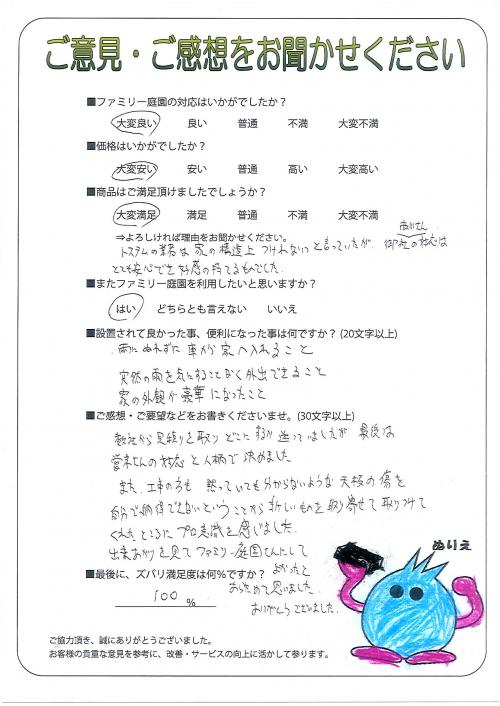 ご意見・ご感想をお聞かせください
■ファミリー庭園の対応はいかがでしたか？
大変良い 良い 普通 不満 大変不満
■価格はいかがでしたか？
大変安い 安い 普通 高い 大変高い
■商品はご満足頂けましたでしょうか？
大変満足 満足 普通 不満 大変不満
⇒よろしければ理由をお聞かせください。
トステムの業者は家の構造上つけれないと言っていたが 御社の 対応は
とても安心でき好感の持てるものでした。
■またファミリー庭園を利用したいと思いますか？
はい どちらとも言えない いいえ
■設置されて良かった事、便利になった事は何ですか？(20文字以上)
雨にぬれずに車から家へ入れること
突然の雨を気にすることなく外出できること
家の外観が豪華になったこと
■ご感想・ご要望などをお書きくださいませ。(30文字以上)
数社から見積りを取りどこにするか迷っていましたが 最後は
営業さんの対応と人柄で決めました
また、工事の方も 黙っていても分からないような天板の傷を
自分で納得できないということから新しいものを取り寄せて取りつけて
くれたところにプロ意識を感じました。
出来あがりを見てファミリー庭園さんにして
よかったと
あらためて思いました。
ありがとうございました。
ぬりえ
■最後に、ズバリ満足度は何%ですか？
100 %
ご協力頂き、誠にありがとうございました。
お客様の貴重な意見を参考に、改善・サービスの向上に活かして参ります。